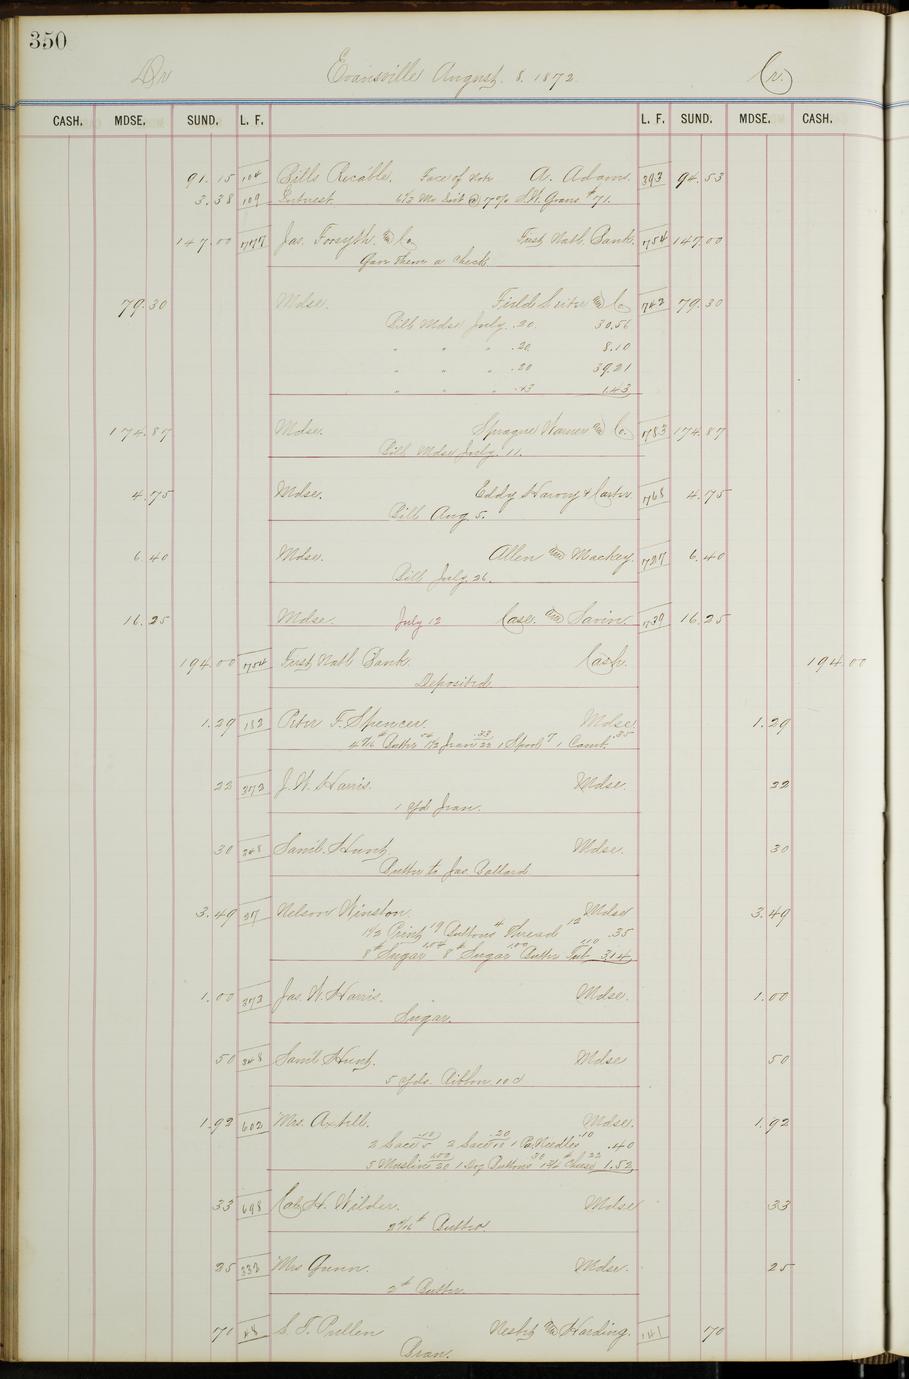 350
Dr Evansville August. 8. 1872 Cr.
CASH. MDSE. SUND. L. F. L. F. SUND. MDSE. CASH.
91.15 104 Bills Rec'able. Face of Note A. Adam. 393 94.53
3.38 109 Interest @ 7% #71.
147.00 777 Jas. Forsyth & Co First Natl. Bank. 754 147.00
Gave them a check.
79.30 Mdse. Field Leiter & Co 742 79.30
Bill Mdse July .20. 30.56
" " " .20. 8.10
" " " .20 39.21
" " " 1.43
174.87 Mdse. Sprague Warner & Co. 783 174.87
Bill Mdse July. 11.
4.75 Mdse. Eddy Harvey & Carter 768 4.75
Bill Aug 5.
6.40 Mdse. Allen and Mackey. 727 6.40
Bill July 26.
16.25 Mdse. July 12 Case. and 739 16.25
194.00 754 First Natl Bank. Cash. 194.00
Deposited.
1.29 152 Peter F. Spencer. Mdse. 1.29
Butter 1 Spool 7 1 Comb .35
22 372 J. W. Harris. Mdse. 22
1 yd Jean.
30 348 Saml. Hunt. Mdse. 30
Butter to Jas. Ballard
3.49 317 Nelson Winston. Mdse 3.49
Print Buttons 4 Thread 12 .35
8# Sugar 8# Sugar 1.00 Butter Tub 1.10 3.14
1.00 372 Jas. W. Harris. Mdse. 1.00
Sugar.
50 348 Saml Hunt. Mdse 50
5 yds. Ribbon 10c
1.92 602 Mrs. Axtell. Mdse. 1.92
2 Lace 2 Lace 1 P. Needles .10 .40
5 Muslin 20 1 Doz Buttons 30 Cheese 22 1.52
33 698 H. Wilder. Mdse 33
Butter
25 333 Mrs Gunn. Mdse. 25
2# Butter.
70 48 S. T. Pullen and Harding. 141 70
Bran.